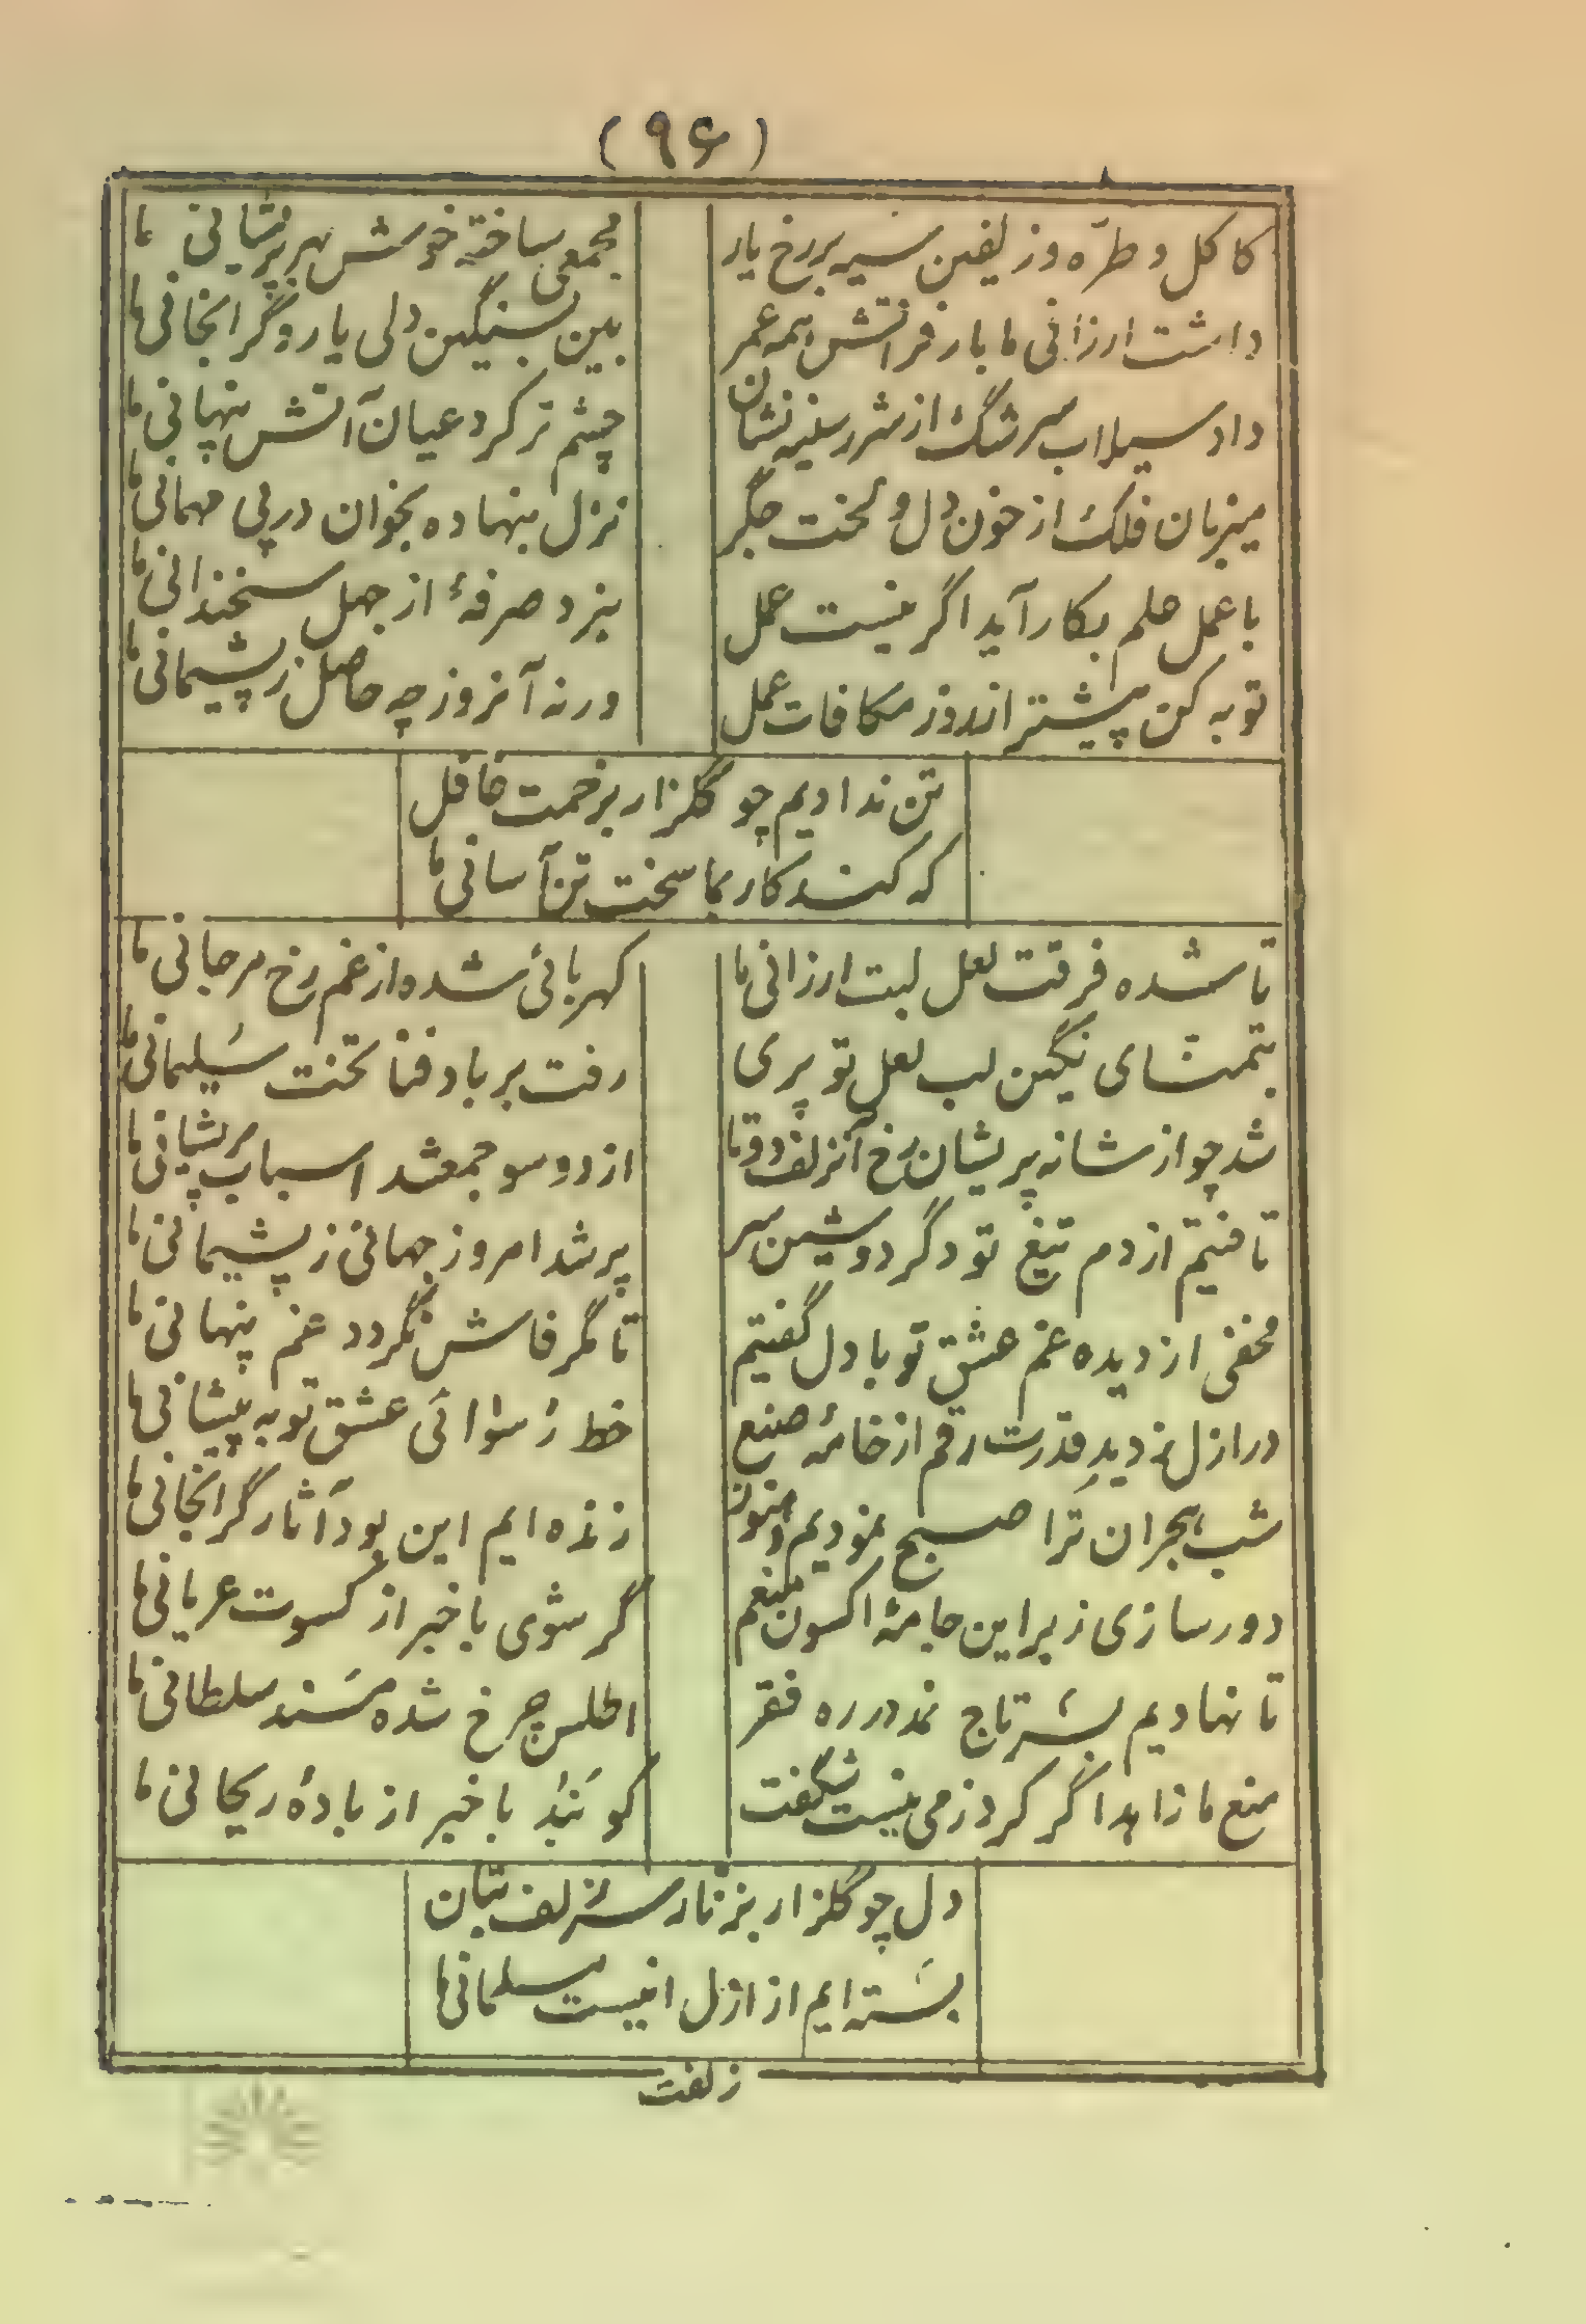 (۹۶)
کاکل و طرّه و زلفین سیه بر رخ یار
مجمعی ساخته خوش بهر پریشانی ما
داشت ارزانی ما بار فراقش همه عمر
بین بسنگین دلی یار و گرانجانی ما
داد سیلاب سرشک از شرر سینه نشان
چشم تر کرد عیان آتش پنهانی ما
میزبان فلک از خون دل و لخت جگر
نزل بنهاده بخوان در پی مهمانی ما
با عمل علم بکار آید اگر نیست عمل
نبرد صرفهٔ از جهل سخندانی ما
توبه کن پیشتر از روز مکافات عمل
ورنه آنروز چه حاصل ز پشیمانی ما
تن ندادیم چو گلزار بزحمت غافل
که کند کار بما سخت تن آسانی ما
تا شده فرقت لعل لبت ارزانی ما
کهربائی شده از غم رخ مرجانی ما
بتمنای نگین لب لعل تو پری
رفت بر باد فنا تخت سلیمانی ما
شد چو از شانه پریشان رخ آنزلف دوتا
از دو سو جمعشد اسباب پریشانی ما
تافتیم از دم تیغ تو دگر دوشین سر
پر شد امروز جهانی ز پشیمانی ما
مخفی از دیده غم عشق تو با دل گفتیم
تا مگر فاش نگردد غم پنهانی ما
در ازل زد ید قدرت رقم از خامهٔ صنع
خط رسوائی عشق تو به پیشانی ما
شب هجران ترا صبح نمودیم و هنوز
زنده ایم این بود آثار گرانجانی ما
دور سازی ز بر این جامهٔ اکسون منعم
گر شوی باخبر از کسوت عریانی ما
تا نهادیم بسر تاج نمد در ره فقر
اطلس چرخ شده مسند سلطانی ما
منع ما زاهد اگر کرد ز می نیست شگفت
کو نبد باخبر از بادهٔ ریحانی ما
دل چو گلزار بزنار سر زلف بتان
بسته ایم از ازل اینست مسلمانی ما
زلفت